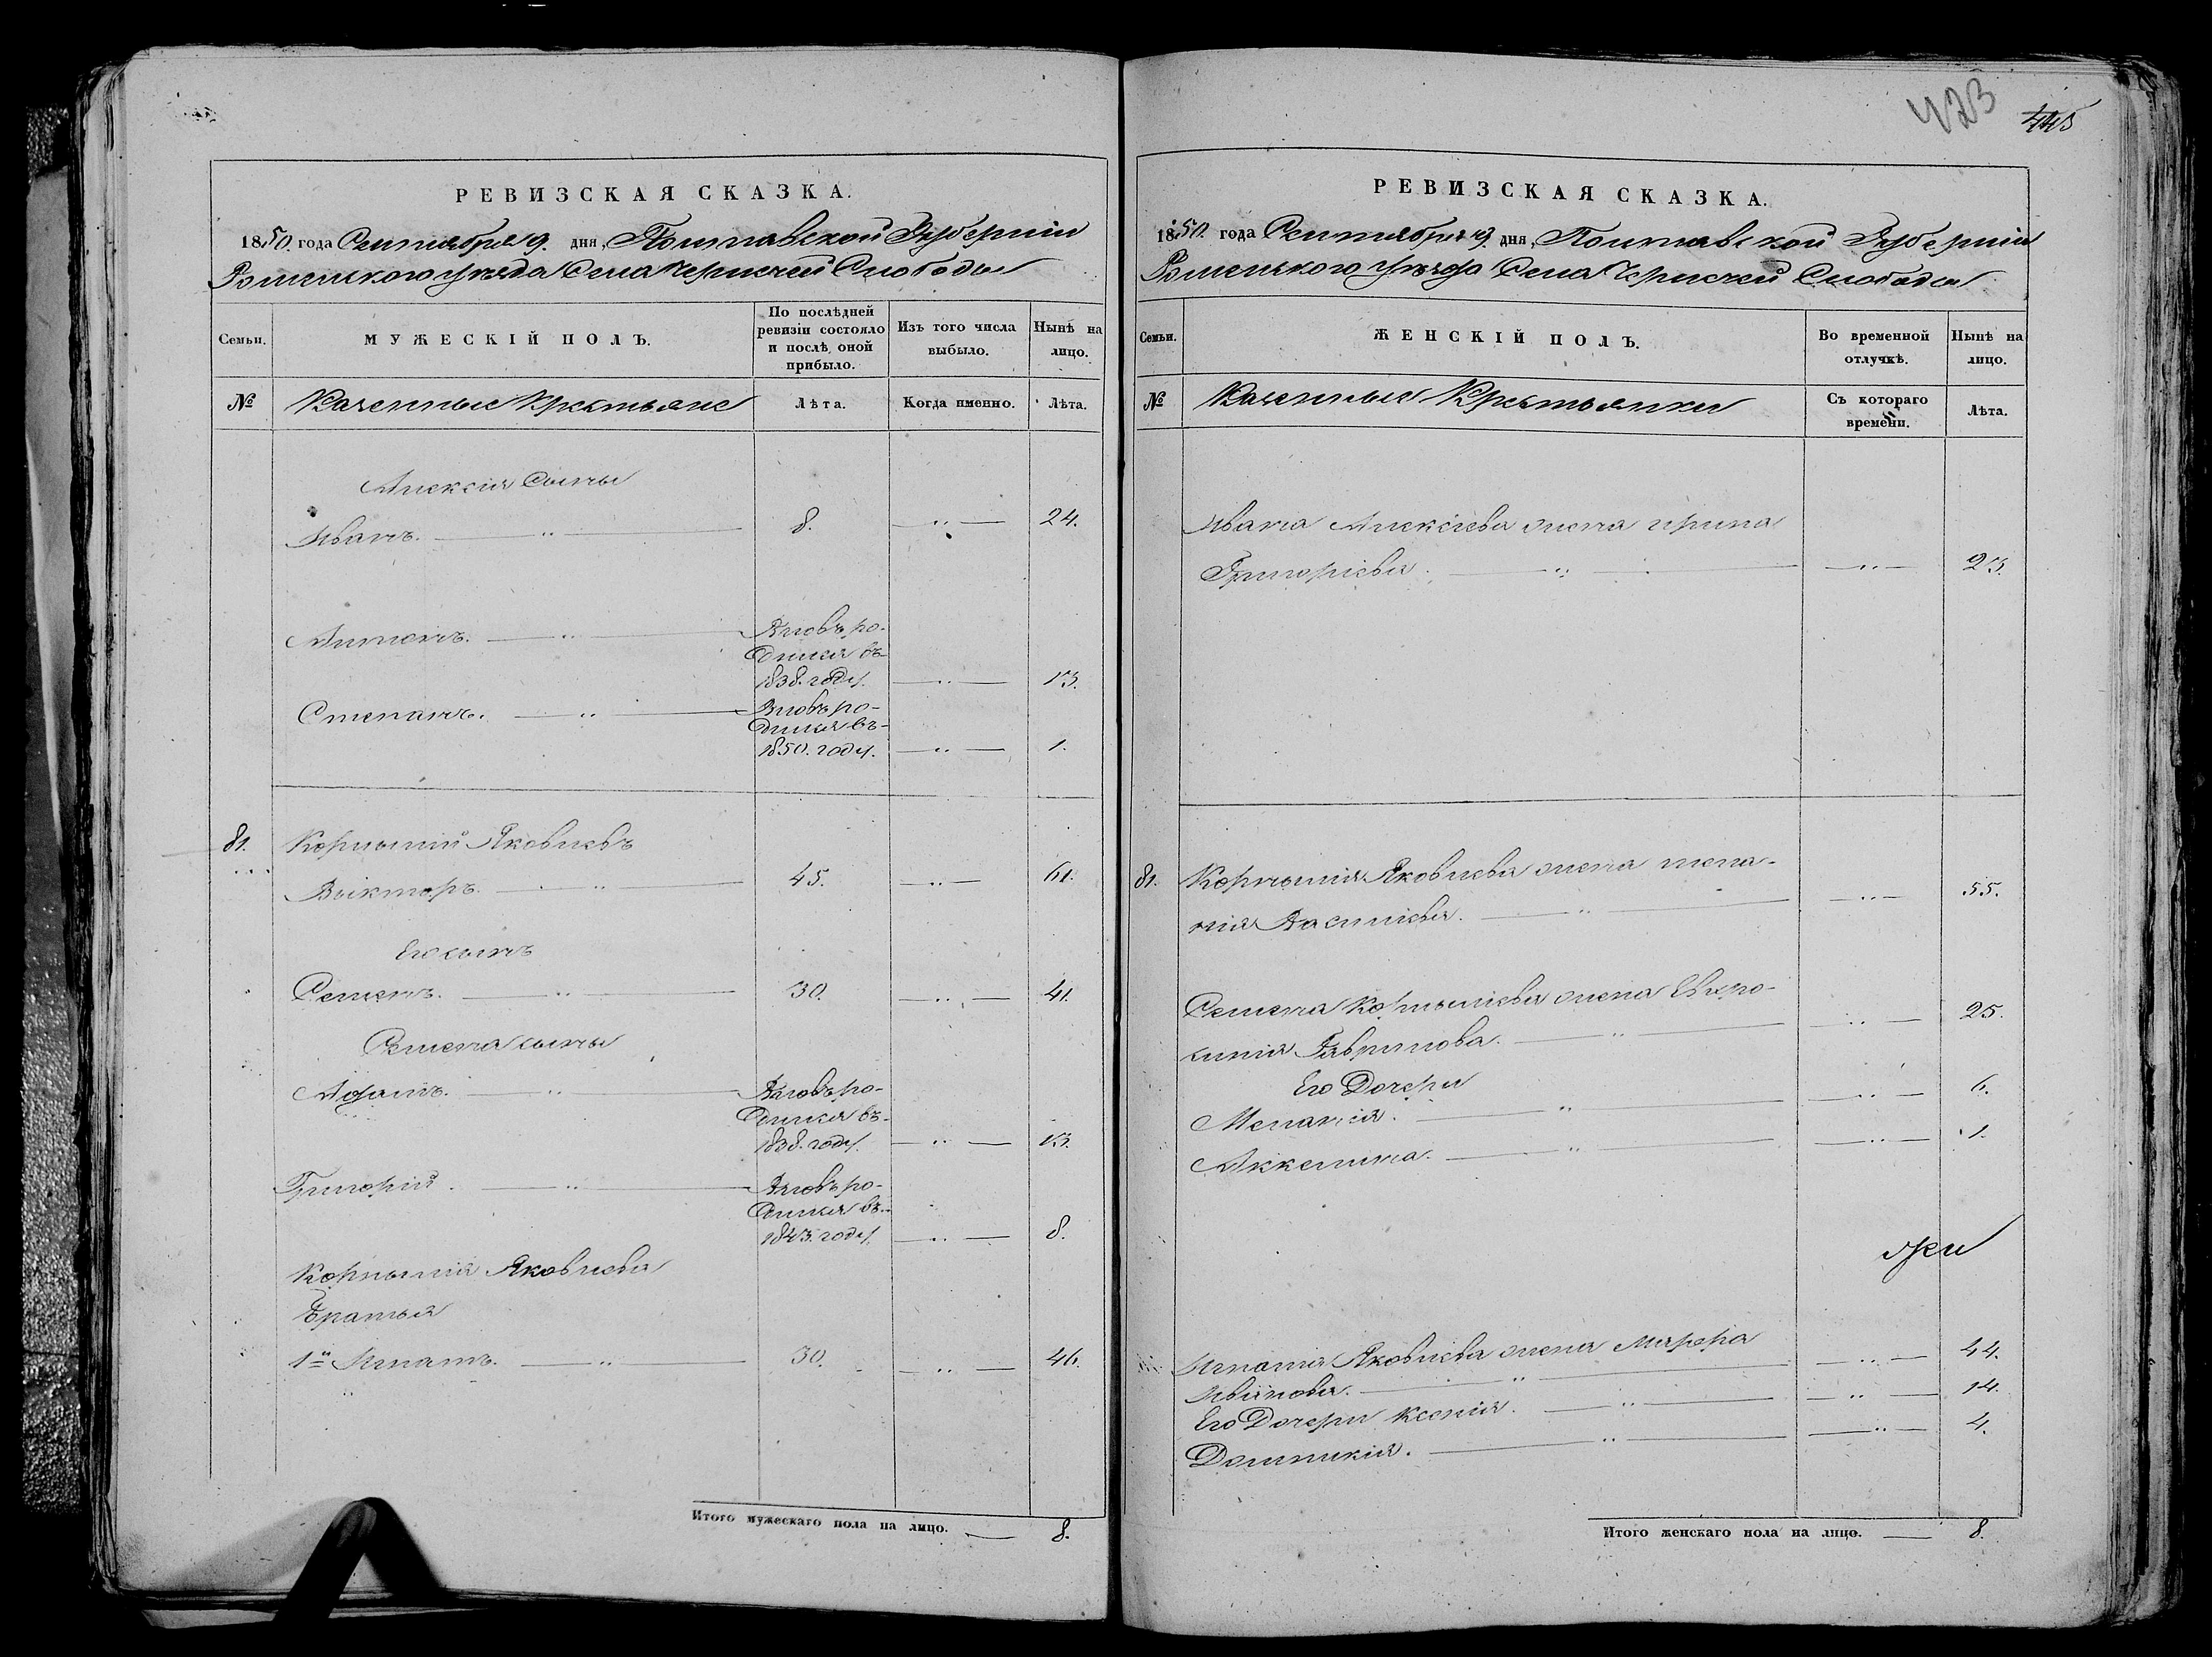 РЕВИЗСКАЯ СКАЗКА.
1850. года Сентября 9. дня, Полтавской Губерніи
Роменского уѣзда Села Чернечей Слободы
Семьи.
МУЖЕСКІЙ ПОЛЪ.
По послѣдней ревизіи состояло и послѣ оной прибыло.
Изъ того числа выбыло.
Нынѣ на лицо.
№
Казенные Крестьяне
Лѣта.
Когда именно.
Лѣта.
Алексія Сыны
Иванъ. 8. 24.
Антонъ. Вновь ро-
дился въ
1838. году. 13.
Степанъ. Вновь ро-
дился въ
1850. году. 1.
81. Корнылій Яковлевъ
Вікторъ. 45. 61.
Его сынъ
Семенъ. 30. 41.
Семена сыны
Адамъ. Вновь ро-
дился въ
1838. году. 13.
Григорій. Вновь ро-
дился въ
1843. году. 8.
Корнылія Яковлева
братья
1й Игнатъ. 30. 46.
Итого мужескаго пола на лицо. 8.
423 445
РЕВИЗСКАЯ СКАЗКА.
1850. года Сентября 9. дня, Полтавской Губерніи
Роменского уѣзда Села Чернечей Слободы
Семьи.
ЖЕНСКІЙ ПОЛЪ.
Во временной отлучкѣ.
Нынѣ на лицо.
№
Казенные Крестьянки
Съ котораго времени.
Лѣта.
Ивана Алексіева жена Ирина
Григоріева. 23.
81. Корнылія Яковлева жена мела-
нія Василіева. 55.
Семена Корныліева жена Евхро-
синія Гаврилова. 25.
Его Дочери
Меланія. 6.
Аккелина. 1.
Игната Яковлева жена Марфа
Иванова. 44.
Его Дочери Ксенія. 14.
Домникія. 4.
Итого женскаго пола на лицо. 8.